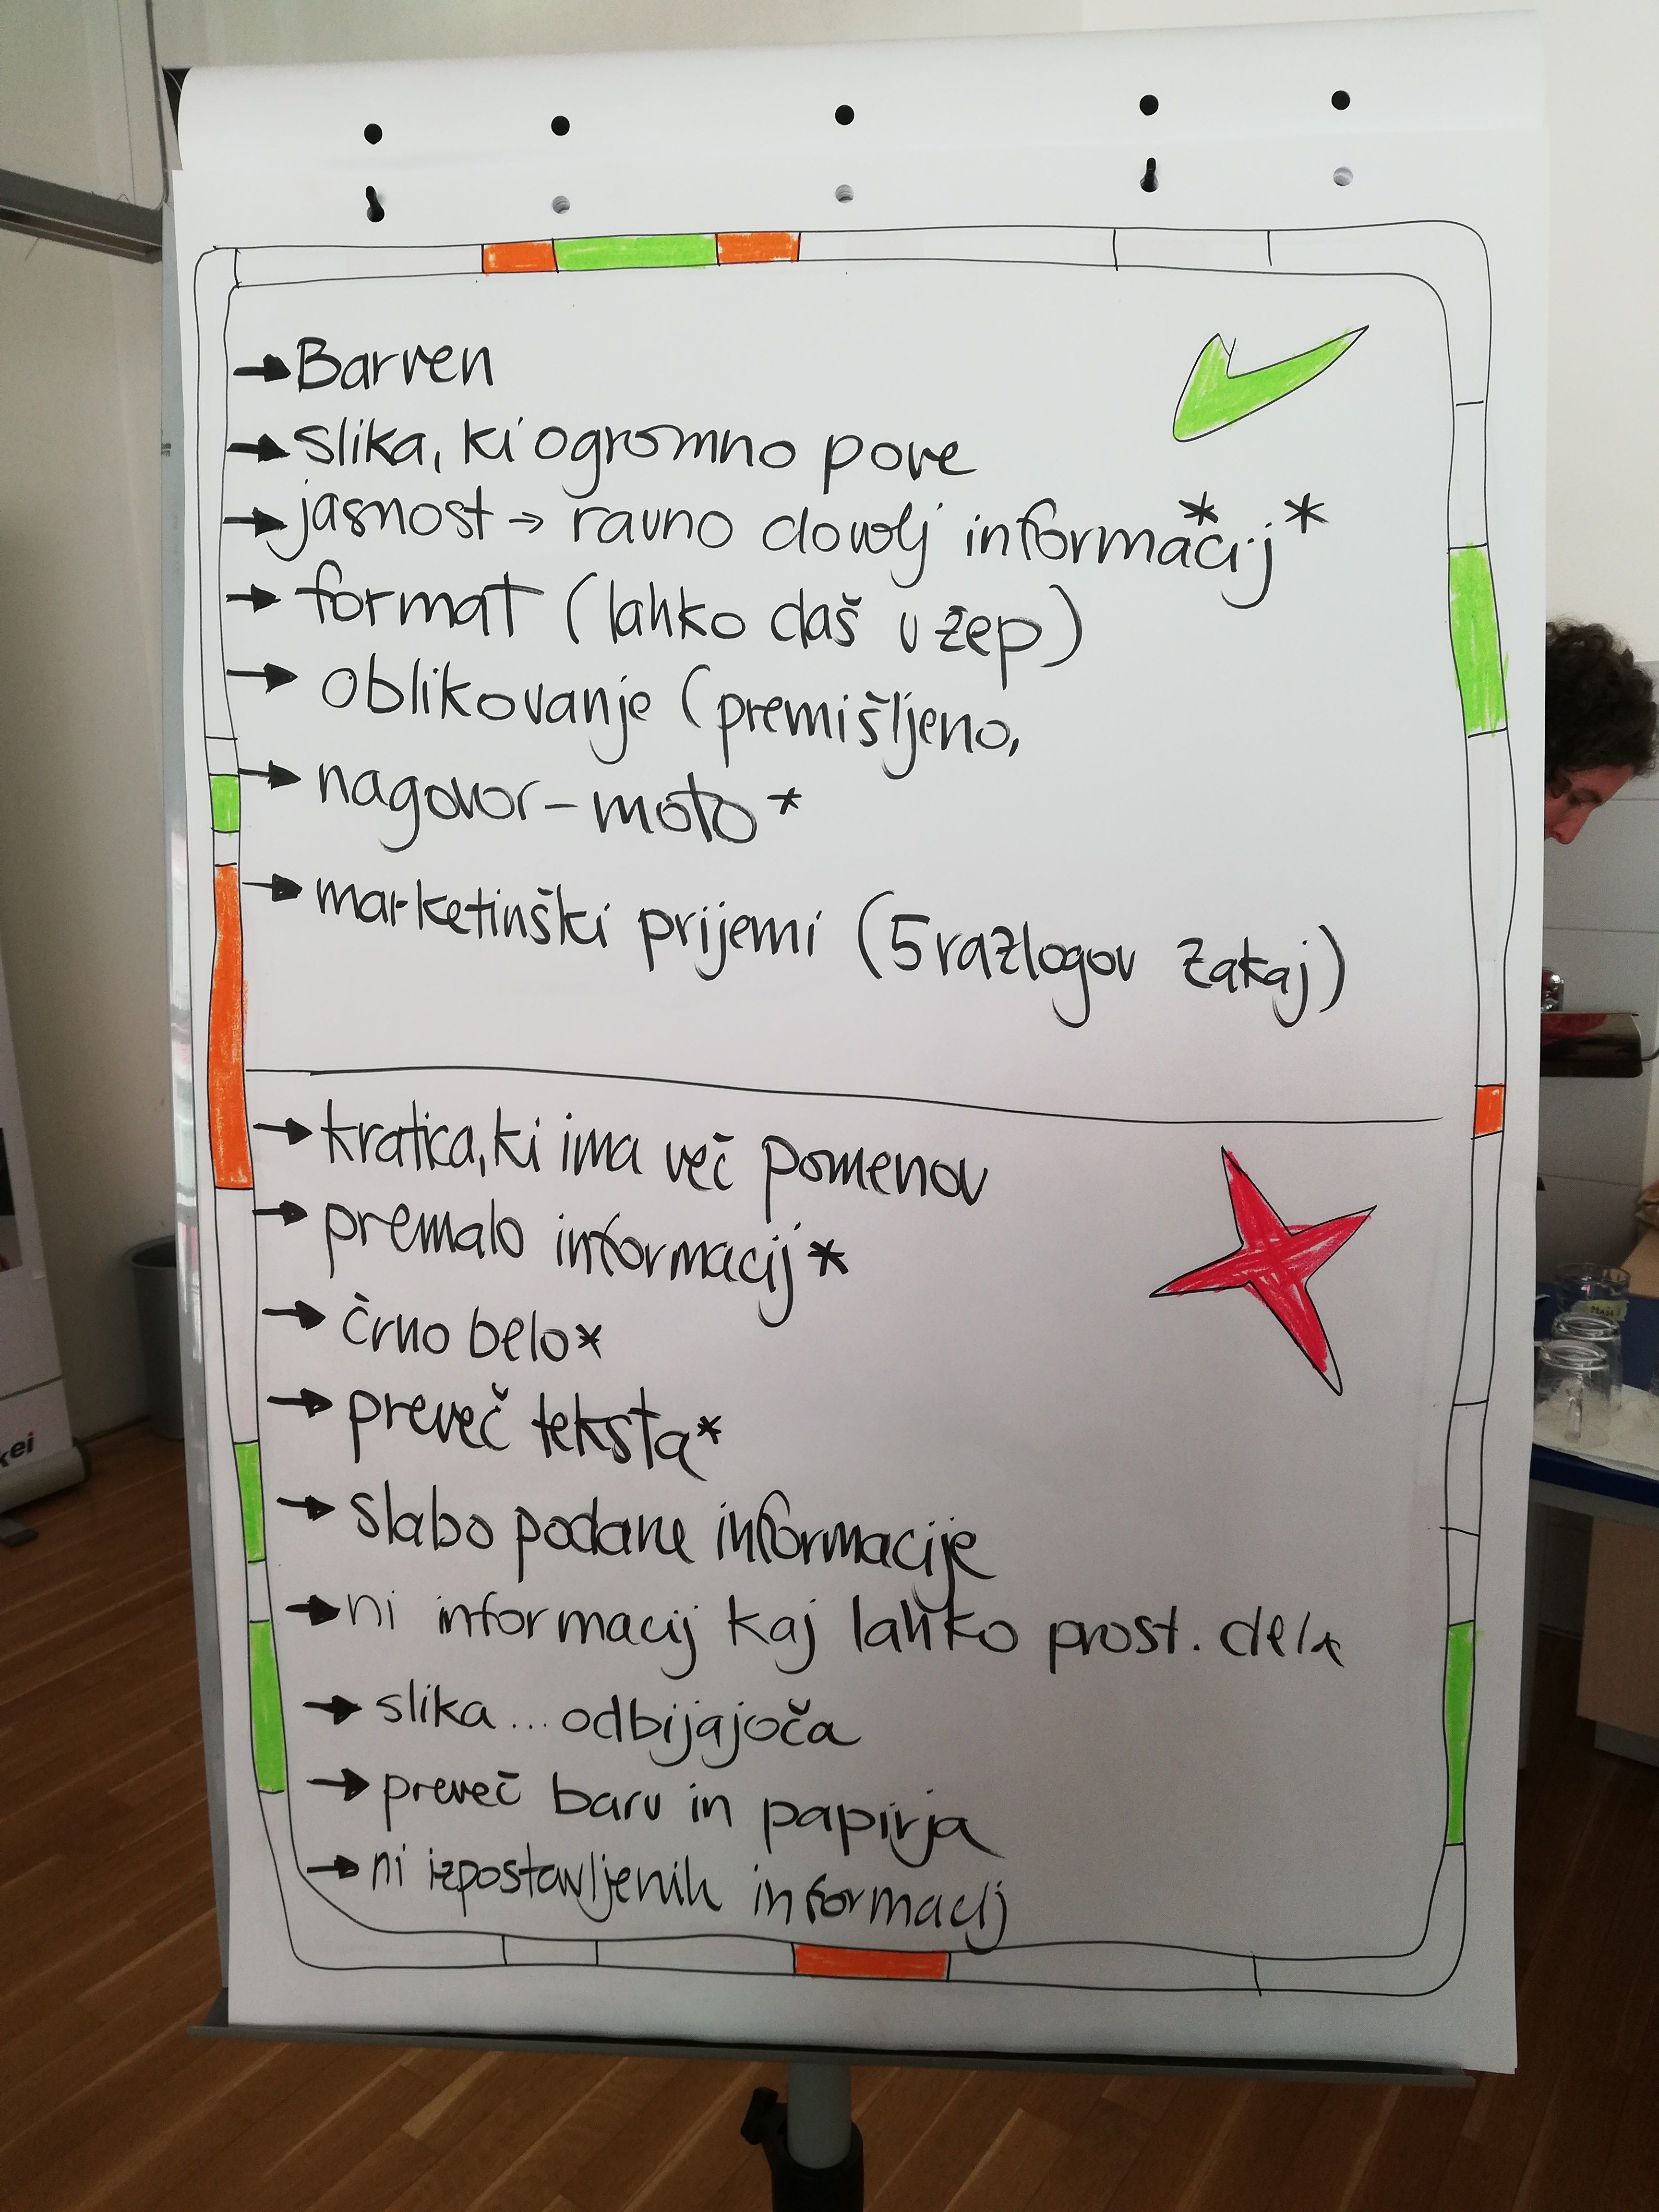 → Barven
→ slika, ki ogromno pove
→ jasnost → ravno dovolj informacij **
→ format (lahko daš v žep)
→ oblikovanje (premišljeno,
→ nagovor - moto *
→ marketinški prijemi (5 razlogov zakaj)
→ kratica, ki ima več pomenov
→ premalo informacij *
→ črno belo *
→ preveč teksta *
→ slabo podane informacije
→ ni informacij kaj lahko prost. dela
→ slika... odbijajoča
→ preveč barv in papirja
→ ni izpostavljenih informacij
kei